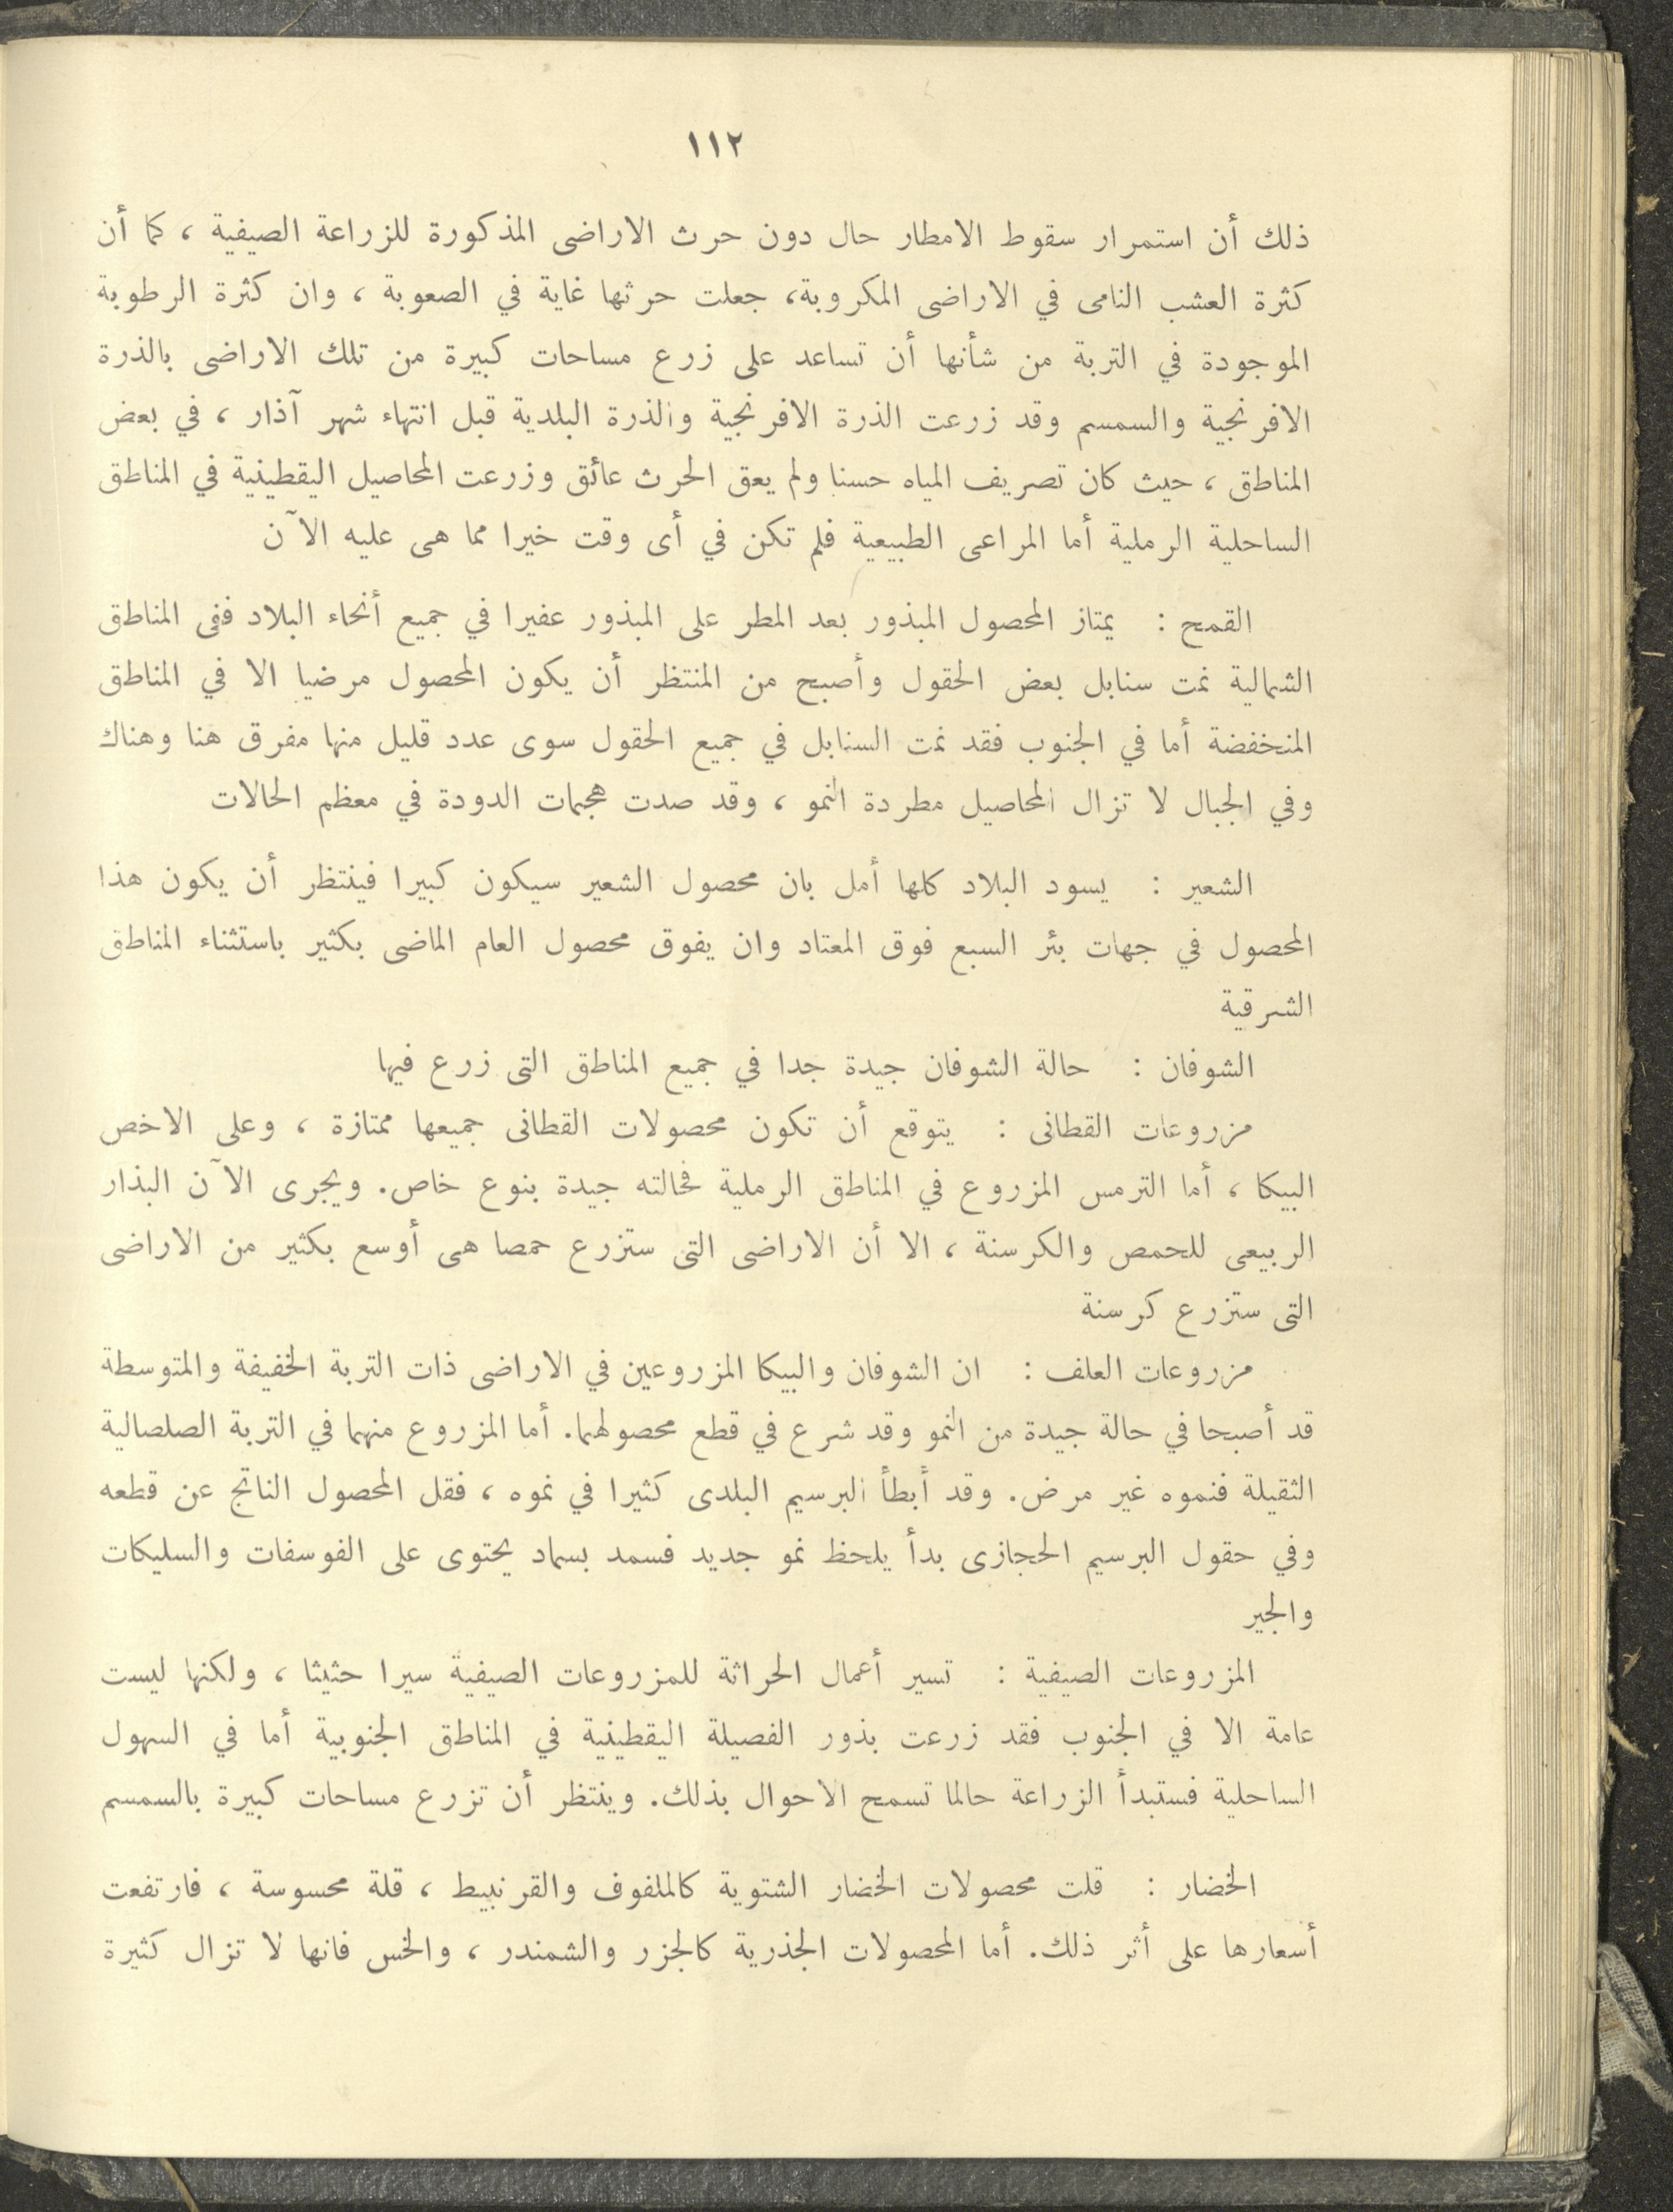 ١١٢
ذلك أن استمرار سقوط الامطار حال دون حرث الاراضى المذكورة للزراعة الصيفية ، كما أن
كثرة العشب النامى في الاراضى المكروبة، جعلت حرثها غاية في الصعوبة ، وان كثرة الرطوبة
الموجودة في التربة من شأنها أن تساعد على زرع مساحات كبيرة من تلك الاراضى بالذرة
الافرنجية والسمسم وقد زرعت الذرة الافرنجية والذرة البلدية قبل انتهاء شهر آذار ، في بعض
المناطق ، حيث كان تصريف المياه حسنا ولم يعق الحرث عائق وزرعت المحاصيل اليقطينية في المناطق
الساحلية الرملية أما المراعى الطبيعية فلم تكن في أى وقت خيرا مما هى عليه الآن
القمح : يمتاز المحصول المبذور بعد المطر على المبذور عفيرا في جميع أنحاء البلاد ففى المناطق
الشمالية نمت سنابل بعض الحقول وأصبح من المنتظر أن يكون المحصول مرضيا الا في المناطق
المنخفضة أما في الجنوب فقد نمت السنابل في جميع الحقول سوى عدد قليل منها مفرق هنا وهناك
وفي الجبال لا تزال المحاصيل مطردة النمو ، وقد صدت هجمات الدودة في معظم الحالات
الشعير : يسود البلاد كلها أمل بان محصول الشعير سيكون كبيرا فينتظر أن يكون هذا
المحصول في جهات بئر السبع فوق المعتاد وان يفوق محصول العام الماضى بكثير باستثناء المناطق
الشرقية
الشوفان : حالة الشوفان جيدة جدا في جميع المناطق التى زرع فيها
مزروعات القطانى : يتوقع أن تكون محصولات القطانى جميعها ممتازة ، وعلى الاخص
البيكا ، أما الترمس المزروع في المناطق الرملية فحالته جيدة بنوع خاص. ويجرى الآن البذار
الربيعى للحمص والكرسنة ، الا أن الاراضى التى ستزرع حمصا هى أوسع بكثير من الاراضى
التى ستزرع كرسنة
مزروعات العلف : ان الشوفان والبيكا المزروعين في الاراضى ذات التربة الخفيفة والمتوسطة
قد أصبحا في حالة جيدة من النمو وقد شرع في قطع محصولهما. أما المزروع منهما في التربة الصلصالية
الثقيلة فنموه غير مرض. وقد أبطأ البرسيم البلدى كثيرا في نموه ، فقل المحصول الناتج عن قطعه
وفي حقول البرسيم الحجازى بدأ يلحظ نمو جديد فسمد بسماد يحتوى على الفوسفات والسليكات
والجير
المزروعات الصيفية : تسير أعمال الحراثة للمزروعات الصيفية سيرا حثيثا ، ولكنها ليست
عامة الا في الجنوب فقد زرعت بذور الفصيلة اليقطينية في المناطق الجنوبية أما في السهول
الساحلية فستبدأ الزراعة حالما تسمح الاحوال بذلك. وينتظر أن تزرع مساحات كبيرة بالسمسم
الخضار : قلت محصولات الخضار الشتوية كالملفوف والقرنبيط ، قلة محسوسة ، فارتفعت
أسعارها على أثر ذلك. أما المحصولات الجذرية كالجزر والشمندر ، والخس فانها لا تزال كثيرة